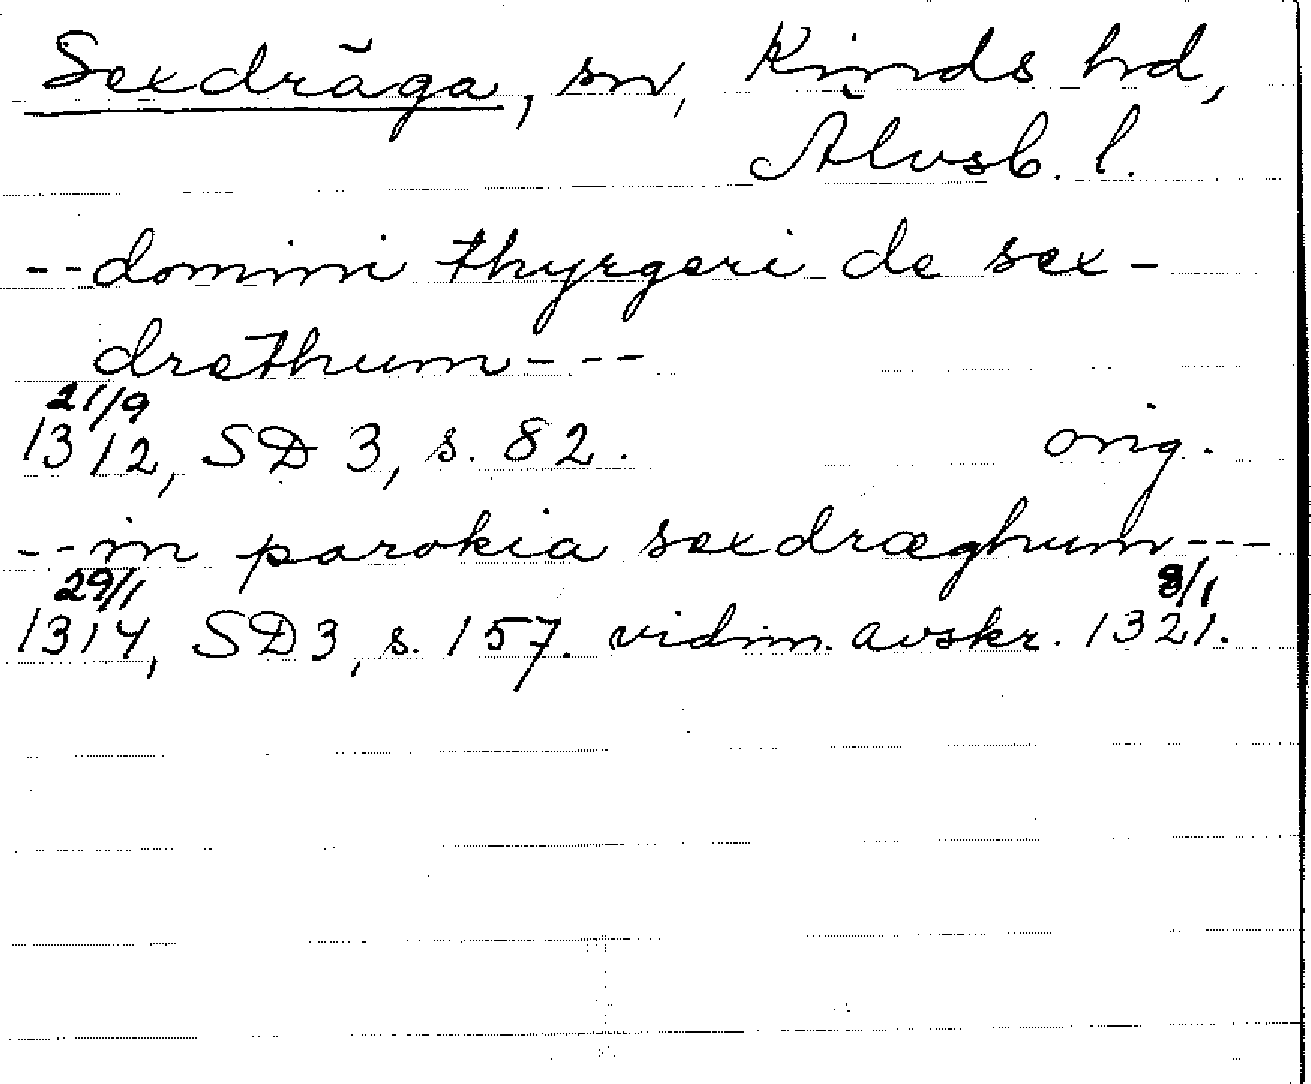 Sexdräga, sn, Kinds hd,
Älvsb. l.
--domini thyrgeri de sex-
drethum---
21/9
1312, SD 3, s. 82. orig.
--in parokia sexdræghum---
29/1 8/1
1314, SD3, s. 157. vidim. avskr. 1321.